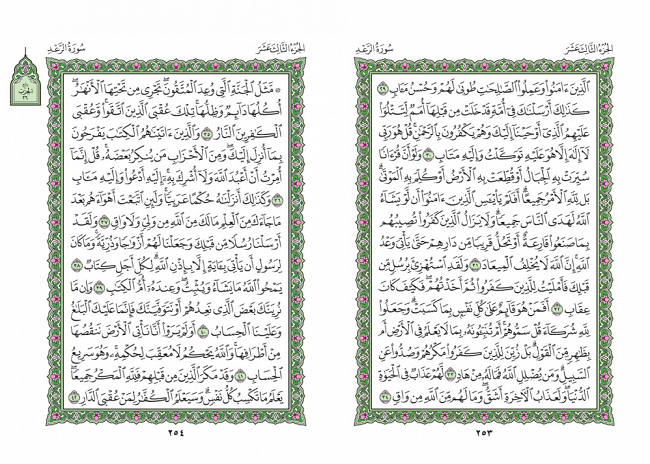 الجزء الثالث عشر
سورة الرعد
ٱلَّذِينَ ءَامَنُوا۟ وَعَمِلُوا۟ ٱلصَّـٰلِحَـٰتِ طُوبَىٰ لَهُمْ وَحُسْنُ مَـَٔابٍ ٢٩
كَذَٰلِكَ أَرْسَلْنَـٰكَ فِىٓ أُمَّةٍ قَدْ خَلَتْ مِن قَبْلِهَآ أُمَمٌ لِّتَتْلُوَا۟
عَلَيْهِمُ ٱلَّذِىٓ أَوْحَيْنَآ إِلَيْكَ وَهُمْ يَكْفُرُونَ بِٱلرَّحْمَـٰنِ ۚ قُلْ هُوَ رَبِّى
لَآ إِلَـٰهَ إِلَّا هُوَ عَلَيْهِ تَوَكَّلْتُ وَإِلَيْهِ مَتَابِ ٣٠ وَلَوْ أَنَّ قُرْءَانًا
سُيِّرَتْ بِهِ ٱلْجِبَالُ أَوْ قُطِّعَتْ بِهِ ٱلْأَرْضُ أَوْ كُلِّمَ بِهِ ٱلْمَوْتَىٰ ۗ
بَل لِّلَّهِ ٱلْأَمْرُ جَمِيعًا ۗ أَفَلَمْ يَا۟يْـَٔسِ ٱلَّذِينَ ءَامَنُوٓا۟ أَن لَّوْ يَشَآءُ
ٱللَّهُ لَهَدَى ٱلنَّاسَ جَمِيعًا ۗ وَلَا يَزَالُ ٱلَّذِينَ كَفَرُوا۟ تُصِيبُهُم
بِمَا صَنَعُوا۟ قَارِعَةٌ أَوْ تَحُلُّ قَرِيبًا مِّن دَارِهِمْ حَتَّىٰ يَأْتِىَ وَعْدُ
ٱللَّهِ ۚ إِنَّ ٱللَّهَ لَا يُخْلِفُ ٱلْمِيعَادَ ٣١ وَلَقَدِ ٱسْتُهْزِئَ بِرُسُلٍ مِّن
قَبْلِكَ فَأَمْلَيْتُ لِلَّذِينَ كَفَرُوا۟ ثُمَّ أَخَذْتُهُمْ ۖ فَكَيْفَ كَانَ
عِقَابِ ٣٢ أَفَمَنْ هُوَ قَآئِمٌ عَلَىٰ كُلِّ نَفْسٍۭ بِمَا كَسَبَتْ ۗ وَجَعَلُوا۟
لِلَّهِ شُرَكَآءَ قُلْ سَمُّوهُمْ ۚ أَمْ تُنَبِّـُٔونَهُۥ بِمَا لَا يَعْلَمُ فِى ٱلْأَرْضِ أَم
بِظَـٰهِرٍ مِّنَ ٱلْقَوْلِ ۗ بَلْ زُيِّنَ لِلَّذِينَ كَفَرُوا۟ مَكْرُهُمْ وَصُدُّوا۟ عَنِ
ٱلسَّبِيلِ ۗ وَمَن يُضْلِلِ ٱللَّهُ فَمَا لَهُۥ مِنْ هَادٍ ٣٣ لَّهُمْ عَذَابٌ فِى ٱلْحَيَوٰةِ
ٱلدُّنْيَا ۖ وَلَعَذَابُ ٱلْـَٔاخِرَةِ أَشَقُّ ۖ وَمَا لَهُم مِّنَ ٱللَّهِ مِن وَاقٍ ٣٤
٢٥٣
الجزء الثالث عشر
سورة الرعد
۞ مَّثَلُ ٱلْجَنَّةِ ٱلَّتِى وُعِدَ ٱلْمُتَّقُونَ ۖ تَجْرِى مِن تَحْتِهَا ٱلْأَنْهَـٰرُ ۖ
أُكُلُهَا دَآئِمٌ وَظِلُّهَا ۚ تِلْكَ عُقْبَى ٱلَّذِينَ ٱتَّقَوا۟ ۖ وَّعُقْبَى
ٱلْكَـٰفِرِينَ ٱلنَّارُ ٣٥ وَٱلَّذِينَ ءَاتَيْنَـٰهُمُ ٱلْكِتَـٰبَ يَفْرَحُونَ
بِمَآ أُنزِلَ إِلَيْكَ ۖ وَمِنَ ٱلْأَحْزَابِ مَن يُنكِرُ بَعْضَهُۥ ۚ قُلْ إِنَّمَآ
أُمِرْتُ أَنْ أَعْبُدَ ٱللَّهَ وَلَآ أُشْرِكَ بِهِۦٓ ۚ إِلَيْهِ أَدْعُوا۟ وَإِلَيْهِ مَـَٔابِ
٣٦ وَكَذَٰلِكَ أَنزَلْنَـٰهُ حُكْمًا عَرَبِيًّا ۚ وَلَئِنِ ٱتَّبَعْتَ أَهْوَآءَهُم بَعْدَ
مَا جَآءَكَ مِنَ ٱلْعِلْمِ مَا لَكَ مِنَ ٱللَّهِ مِن وَلِىٍّ وَلَا وَاقٍ ٣٧ وَلَقَدْ
أَرْسَلْنَا رُسُلًا مِّن قَبْلِكَ وَجَعَلْنَا لَهُمْ أَزْوَٰجًا وَذُرِّيَّةً ۚ وَمَا كَانَ
لِرَسُولٍ أَن يَأْتِىَ بِـَٔايَةٍ إِلَّا بِإِذْنِ ٱللَّهِ ۗ لِكُلِّ أَجَلٍ كِتَابٌ ٣٨
يَمْحُوا۟ ٱللَّهُ مَا يَشَآءُ وَيُثْبِتُ ۖ وَعِندَهُۥٓ أُمُّ ٱلْكِتَـٰبِ ٣٩ وَإِن مَّا
نُرِيَنَّكَ بَعْضَ ٱلَّذِى نَعِدُهُمْ أَوْ نَتَوَفَّيَنَّكَ فَإِنَّمَا عَلَيْكَ ٱلْبَلَـٰغُ
وَعَلَيْنَا ٱلْحِسَابُ ٤٠ أَوَلَمْ يَرَوْا۟ أَنَّا نَأْتِى ٱلْأَرْضَ نَنقُصُهَا
مِنْ أَطْرَافِهَا ۚ وَٱللَّهُ يَحْكُمُ لَا مُعَقِّبَ لِحُكْمِهِۦ ۚ وَهُوَ سَرِيعُ
ٱلْحِسَابِ ٤١ وَقَدْ مَكَرَ ٱلَّذِينَ مِن قَبْلِهِمْ فَلِلَّهِ ٱلْمَكْرُ جَمِيعًا ۖ
يَعْلَمُ مَا تَكْسِبُ كُلُّ نَفْسٍ ۗ وَسَيَعْلَمُ ٱلْكُفَّـٰرُ لِمَنْ عُقْبَى ٱلدَّارِ ٤٢
٢٥٤
الحزب
٢٦